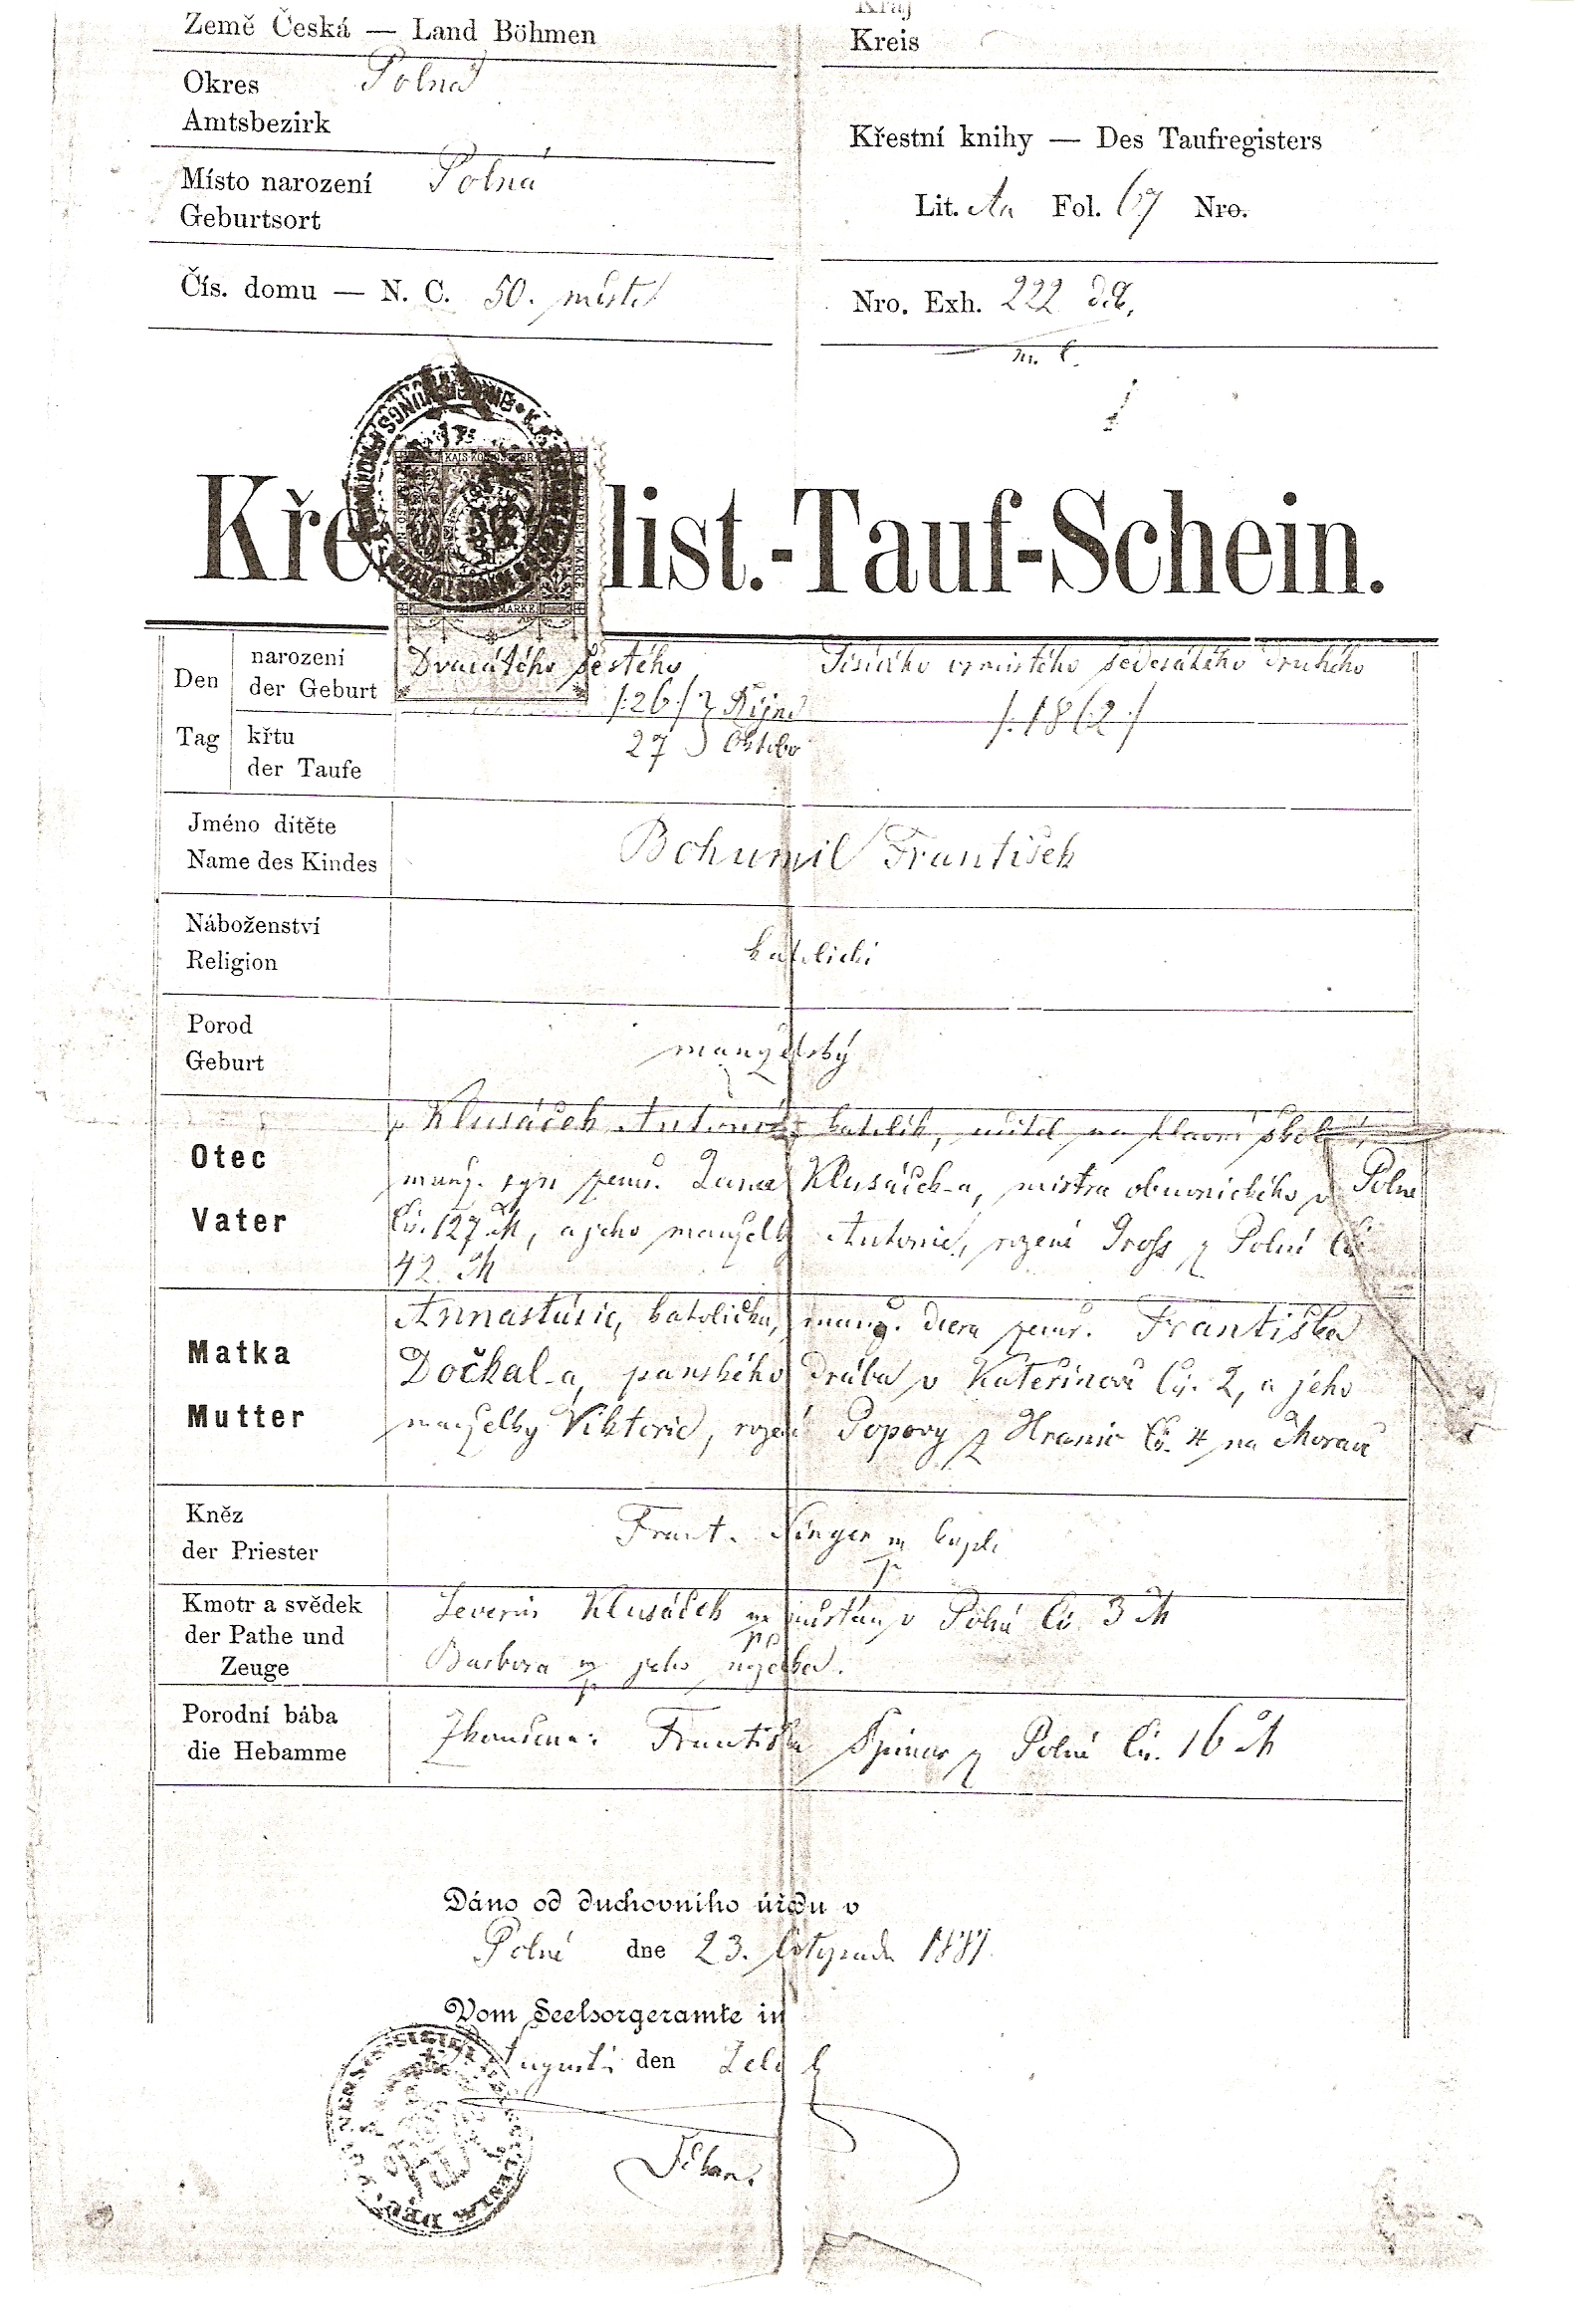 Kraj
Země Česká — Land Böhmen
Kreis
Okres Polná
Amtsbezirk
Křestní knihy — Des Taufregisters
Místo narození Polná
Geburtsort
Lit. Fol. 67 Nro.
Čís. domu — N. C. 50. město
Nro. Exh. 222
Kře list.-Tauf-Schein.
KAIS. KÖN. ÖSTERR
STEMPEL MARKE
Den narození Dvacátého šestého Tisícího osmistého šedesátého druhého
der Geburt /:26:/ Října /:1862:/
Tag křtu 27 Októbr
der Taufe
Jméno dítěte
Name des Kindes Bohumil František
Náboženství
Religion katolické
Porod
Geburt manželský
Klusáček Antonín katolík, učitel na hlavní škole
Otec
manž. syn zemř. Klusáček-a, mistra obuvnického v Polné
Vater čís. 127 M, a jeho manželky Antonie, rozené Gross z Polné čís.
42. M
Annastasie, katolička, manž. dcera zemř. Františka
Matka Dočkal-a, panského drába v Kateřinově čís. 2, a jeho
Mutter manželky Viktorie, rozené Popovy z Hranic čís. 4 na Moravě
Kněz
der Priester Frant. Singer
Kmotr a svědek Severin Klusáček měšťan v Polné čís. 3 M
der Pathe und
Zeuge Barbora jeho
Porodní bába
die Hebamme Zkoušená: Františka z Polné čís. 16 M
Dáno od duchovního úřadu v
Polné dne 23. listopadu
Vom Seelsorgeramte in
den
děkan.